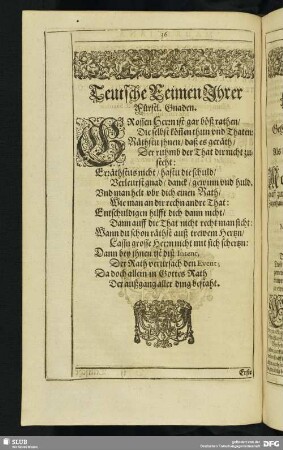 36
Teutsche Reimen Jhrer
Fürstl. Gnaden.
GRossen Herrn ist gar böß rathen/
Die selbst sössen thun und Thaten
Räthstu jhnen/ daß es geräth/
Der ruhmb der That dir nicht zu
steht:
Erräthstus nicht/ hastu die schuld/
Verleurst gnad/ danck/ gewinn und huld.
Vnd man helt vor dich einen Rath/
Wie man an dir rechn andre That:
Entschuldigen hilfft dich dann nicht/
Dann auff die That nicht recht man sicht:
Wann du schon räthst auß trewem Hertzn/
Lassn grosse Herrn nicht mit sich schertzn:
Dann bey jhnen ist diß Intent,
Der Rath verursach den Event;
Da doch allein in Gottes Rath
Der außgang aller ding bestaht.
Erste
SLUB
DFG